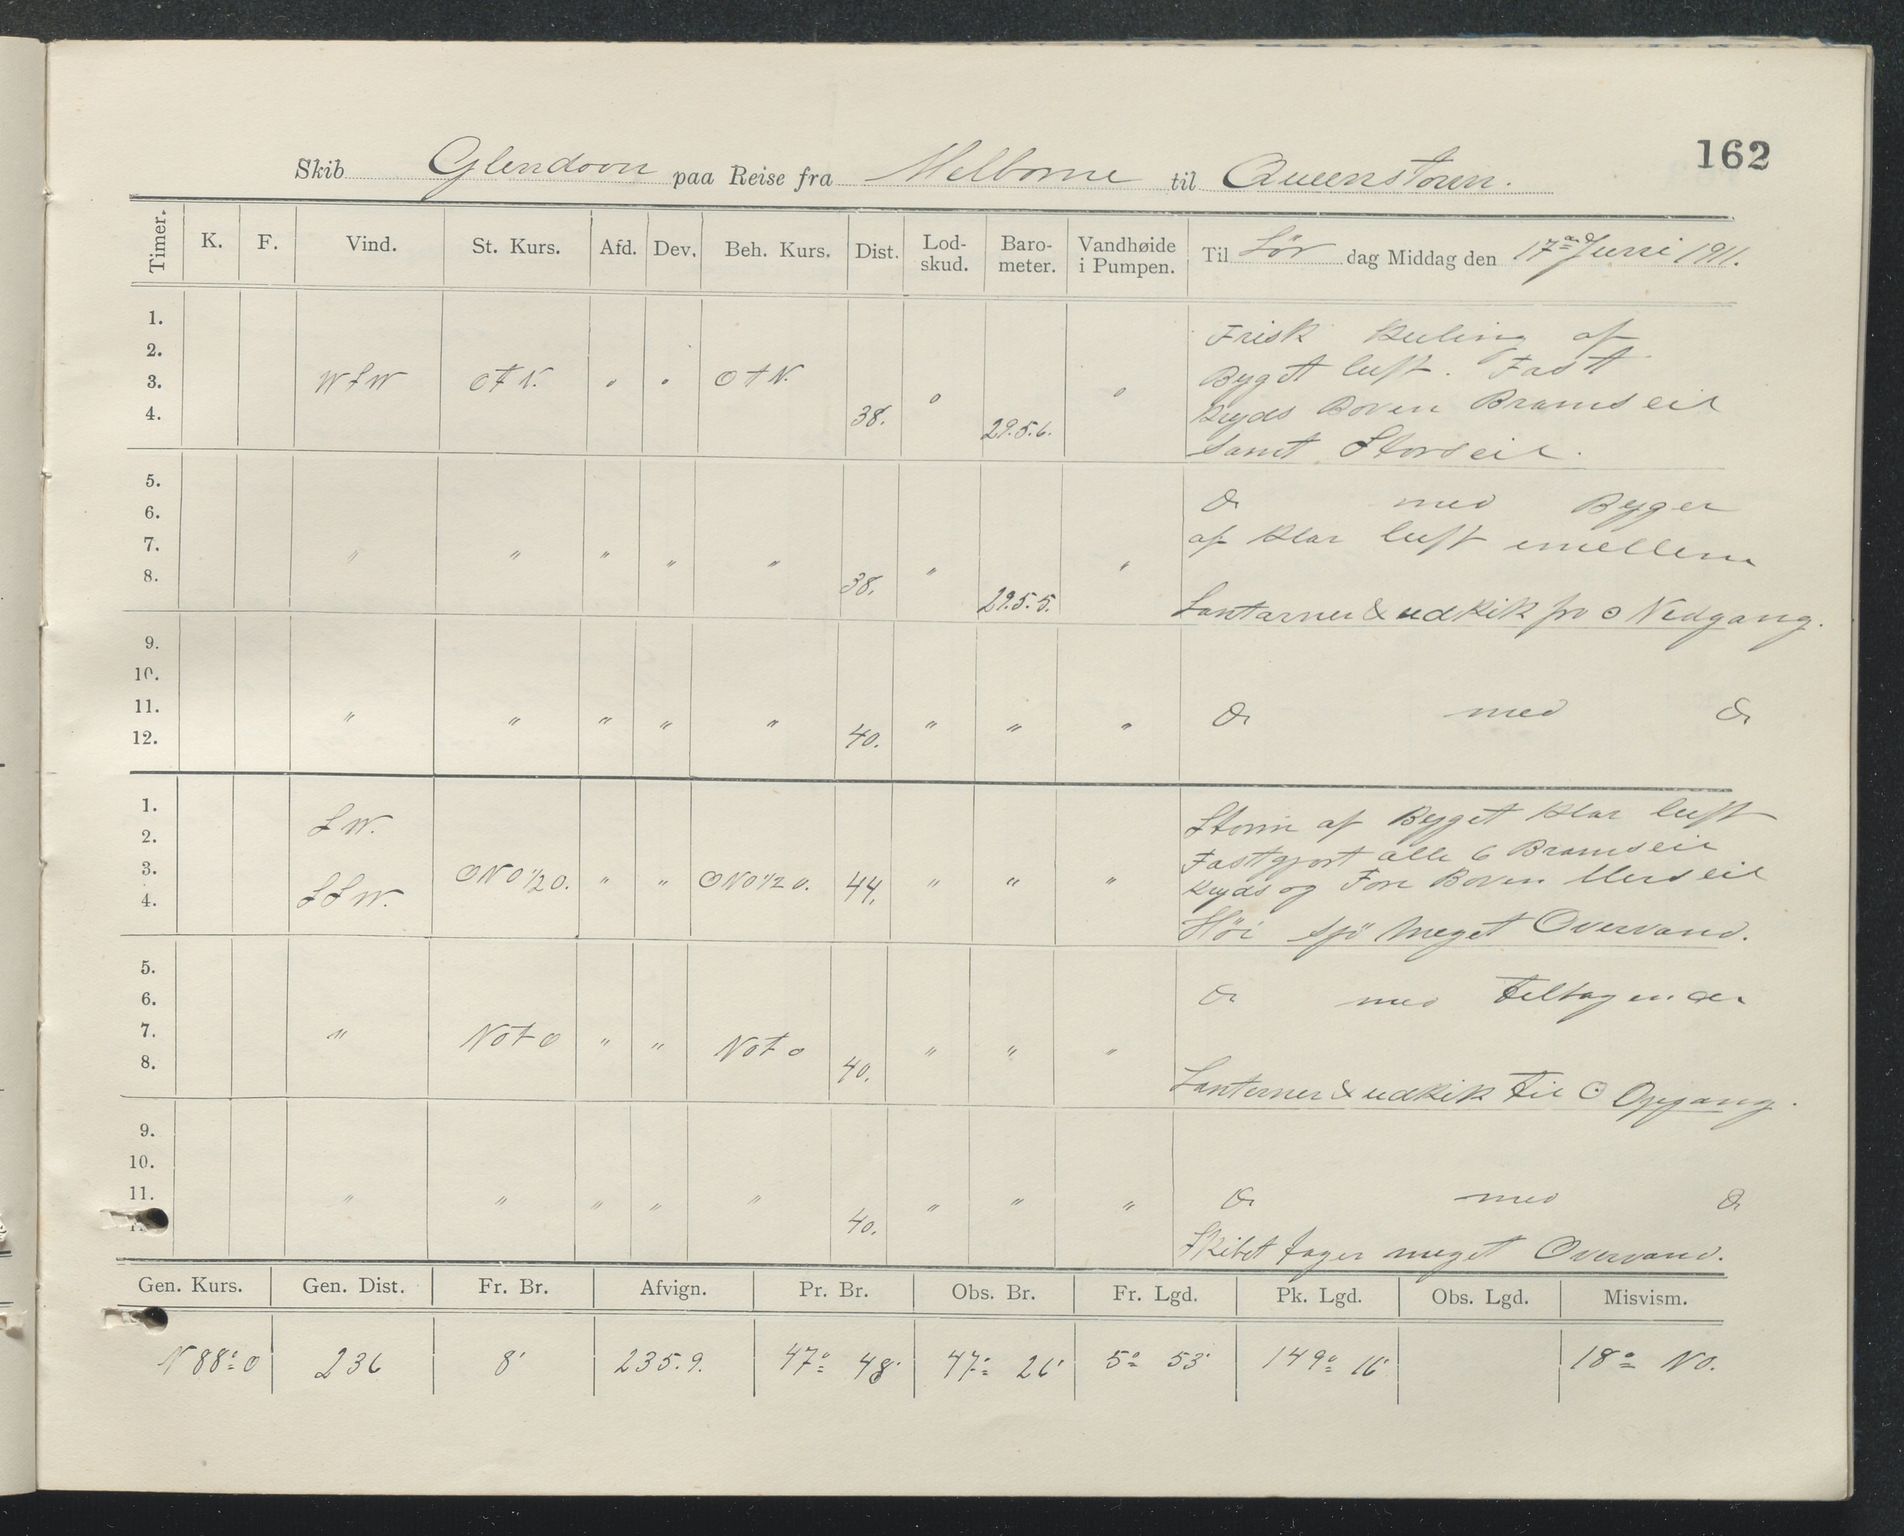 162
Skib Glendoon paa Reise fra Melborne til Queenstoun.
Timer. K. F. Vind. St. Kurs. Afd. Dev. Beh. Kurs. Dist. Lod-skud. Baro-meter. Vandhøide i Pumpen. Til Lör dag Middag den 17de Juni 1911.
1. Frisk Kuling af
2. Byget luft. Fast
3. WSW OtN. " " OtN. " "
Kryds Boven Bramseil
4. 38. 29.5.6.
Samt Storseil.
5. Do med Byger
6. af Klar luft imellem
7. " " " " " " "
8. 38. 29.5.5.
Lantarner & udkik fra ☉ Nedgang.
9.
10.
11. " " " " " " " " Do med Do
12. 40.
1. SW. Storm af Byget Klar luft
2. Fastgjort alle 6 Bramseil
3. ONO 1/2 O. " " ONO 1/2 O. 44. " " "
Kryds og Fore Boven Merseil
4. SSW.
Höi sjö meget Overvand.
5. Do med Tiltagender
6.
7. " NOtO " " NOtO " " "
8. 40.
Lanterner & udkik til ☉ Opgang.
9.
10.
11. " " " " " " " " Do med Do
40.
Skibet tager meget Overvand.
Gen. Kurs. Gen. Dist. Fr. Br. Afvign. Pr. Br. Obs. Br. Fr. Lgd. Pk. Lgd. Obs. Lgd. Misvism.
N 88° O 236 8' 235.9. 47° 48' 47° 26' 5° 53' 149° 16' 18° NO.